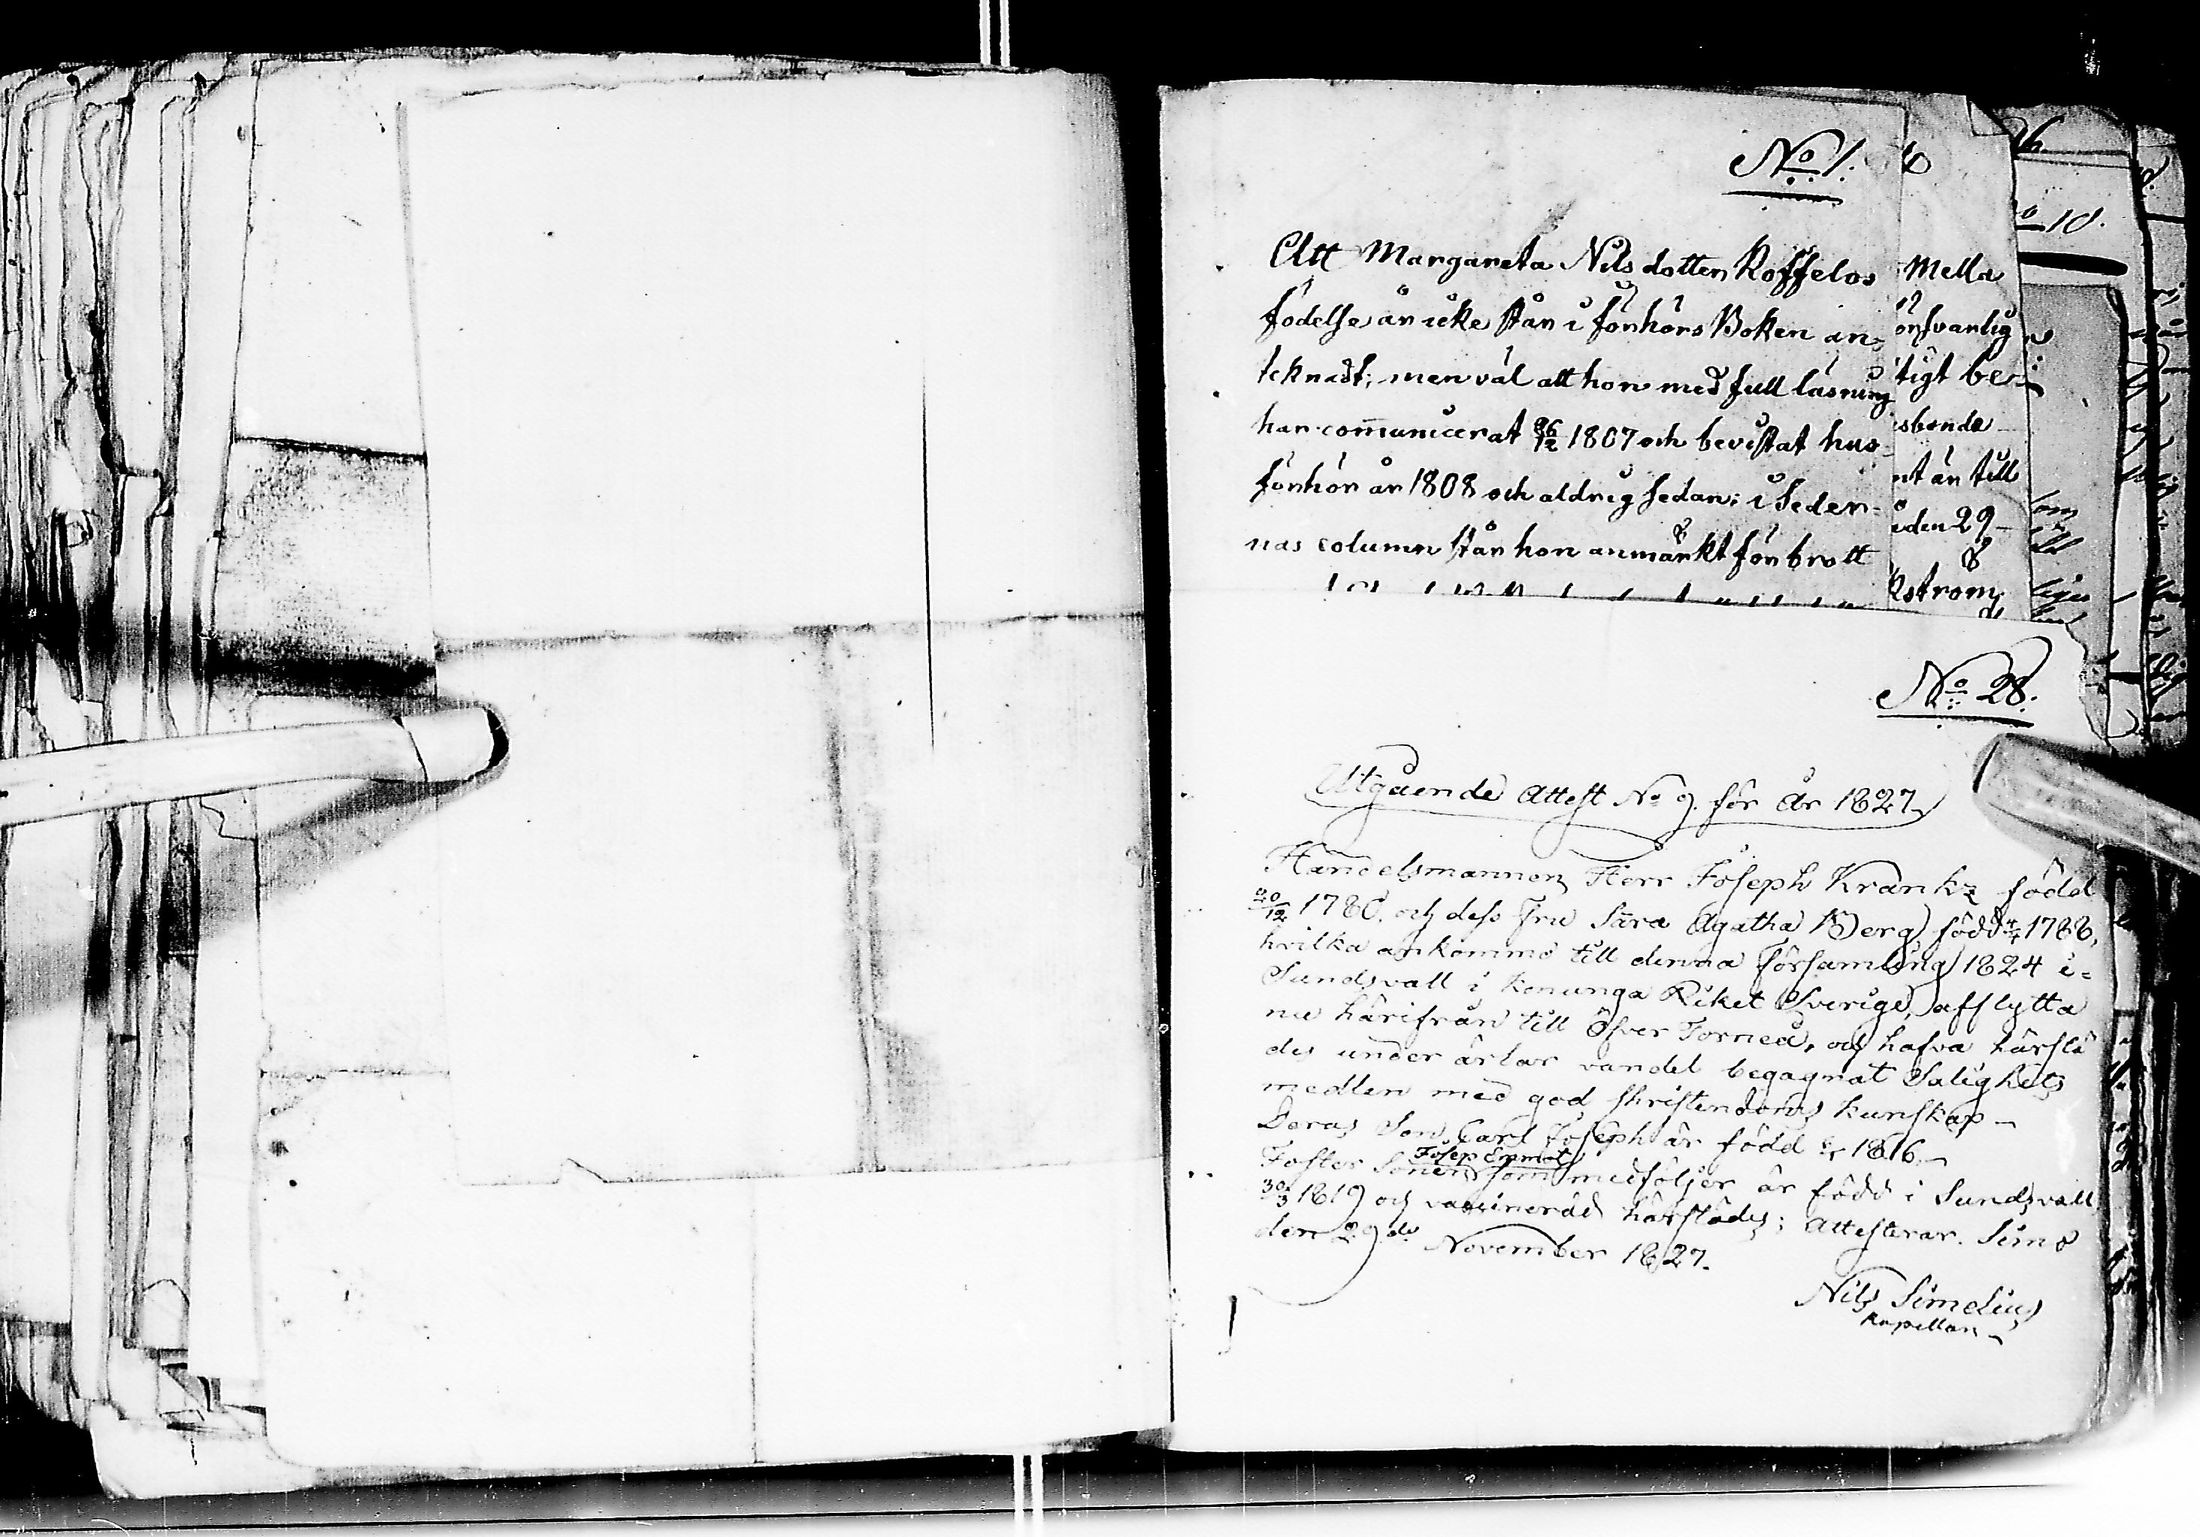 No 1.
Att Margareta Nilsdotter Koffelos
födelse år icke står i förhörs Boken an-
teknadt; men väl att hon med full läsning
har communicerat 26/12 1807 och bevistat hus-
förhör år 1808 och aldrig sedan; i Seder-
nas column står hon anmärkt för brott
Mella
onsvarlig
tigt be-
sbonde
nt än till
den 29
kstrom
o 10.
No 28.
Utgående Attest No 9. för år 1827
Handelsmannen Herr Joseph Krankz född
20/12 1780. och dess Fru Sara Agatha Berg, född 4/4 1788,
hvilka ankommo till denna Församling 1824 i-
Sundsvall i Konunga Riket Sverige, afflytta
nu härifrån till Öfver Torneå, och hafva härstä
des under ärbar vandel begagnat Salighets
medlen med god Christendoms kunskap –
Deras Son Carl Joseph är född 1816 –
Josep Emmot
Foster Sonen som medföljer är född i Sundsvall
30/3 1819 och vaccinerad härstädes; Attesterar. Simo
den 29de November 1827.
Nils Simelius
Kapellan